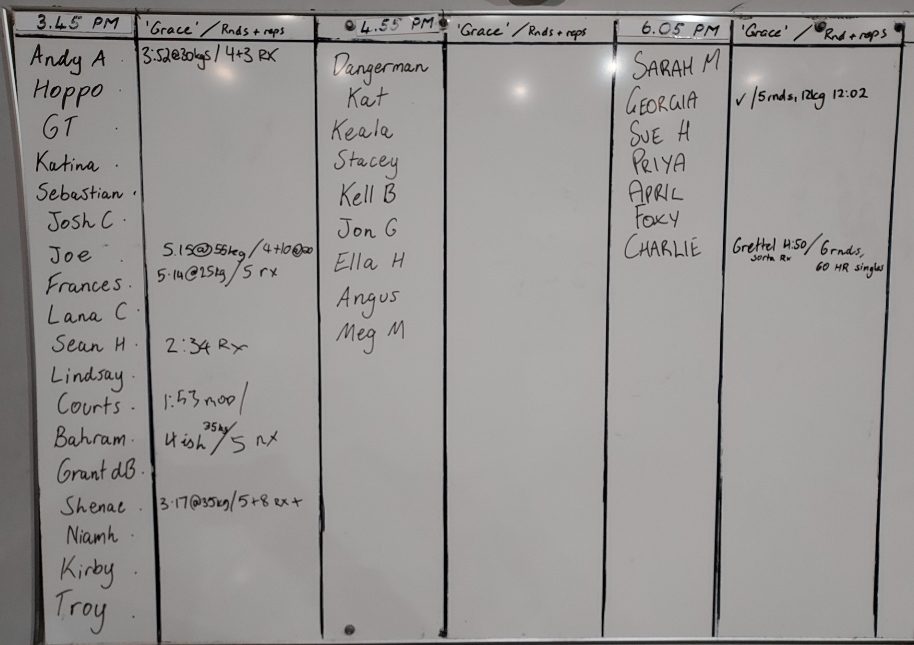 3.45 PM 'Grace' / Rnds + reps
Andy A . 3:52@30kgs / 4+3 RX
Hoppo .
GT .
Katina .
Sebastian .
Josh C .
Joe . 5.15@55kg / 4+10@
Frances . 5.14@25kg / 5 rx
Lana C .
Sean H . 2:34 Rx
Lindsay .
Courts . 1:53 /
Bahram . 4ish 35kg / 5 rx
Grant dB .
Shenae . 3.17@35kg / 5+8 Rx+
Niamh .
Kirby .
Troy .
4.55 PM 'Grace' / Rnds + reps
Dangerman
Kat
Keala
Stacey
Kell B
Jon G
Ella H
Angus
Meg M
6.05 PM 'Grace' / Rnd + reps
SARAH M
GEORGIA ✓ / 5rnds, 12kg 12:02
SUE H
PRIYA
APRIL
FOXY
CHARLIE Grettel 4:50 / 6rnds,
sorta Rx 60 HR singles